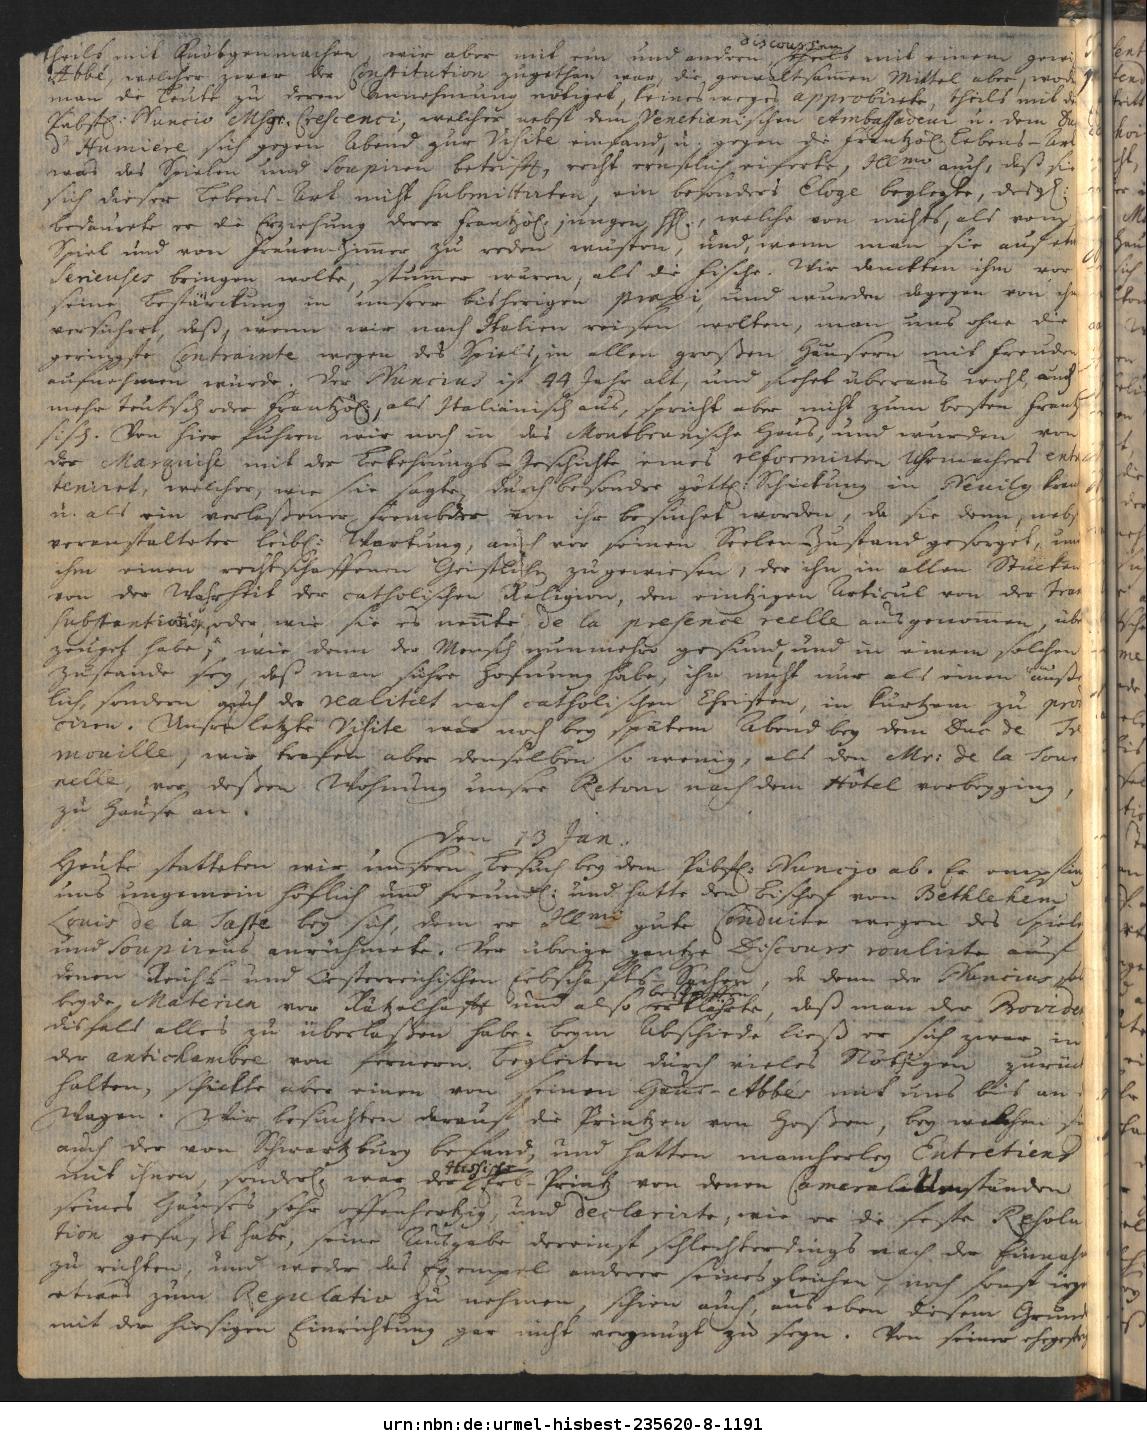 theils mit Knötgenmachen, wir aber mit ein und andern discoursen theils mit einem gewi
Abbé, welcher zwar der Constitution zugethan war, die gewaltsamen Mittel aber, wod
man die Leute zu deren Annehmung nötiget, keinesweges approbirete, theils mit de
Päbstl: Nuncio Msgr. Crescenci, welcher nebst dem Venetianischen Ambassadeur u. dem Du
d'Humiere sich gegen Abend zur Visite einfand, u. gegen die Frantzös: Lebens-Art
was das Spielen und Soupiren betrifft, recht ernstlich eiferte, Illmo auch, daß sie
sich dieser Lebens-Art nicht submittirten, ein besonders Eloge beylegte, desgl:
bedaurete er die Erziehung derer Frantzös: jungen HH., welche von nichts, als vom
Spiel und von Frauen-Zimmer zu reden wusten, und, wenn man sie auf etw
Serieuses bringen wolte, stummer wären, als die Fische. Wir danckten ihm vor
seine Bestärckung in unserer bisherigen praxi, und wurden dagegen von ihm
versichert, daß, wenn wir nach Italien reisen wolten, man uns ohne die
geringste Contrainte wegen des Spiels, in allen großen Häusern mit Freuden
aufnehmen würde. Der Nuncius ist 44 Jahr alt, und siehet überaus wohl, auch
mehr teutsch oder Frantzös:, als Italiänisch aus, spricht aber nicht zum besten Frantz
sisch. Von hier fuhren wir noch in das Montbernische Haus, und wurden von
der Marquise mit der Bekehrungs-Geschichte eines reformirten Uhrmachers ent
teniret, welcher, wie sie sagte, durch besondre göttl: Schickung in Neuily kran
u. als ein verlaßener Frembder von ihr besuchet worden, da sie denn, nebst
veranstalteter leibl: Wartung, auch vor seinen Seelen-Zustand gesorget, und
ihm einen rechtschaffenen Geistlichen zugewiesen, der ihn in allen Stücken
von der Wahrheit der catholischen Religion, den eintzigen Articul von der Tran
substantiation, oder, wie sie es nente, de la presence reelle ausgenommen, übe
zeuget habe, wie denn der Mensch nunmehro gesund, und in einem solchen
Zustande sey, daß man sichre Hofnung habe, ihn nicht nur als einen äuße
lich, sondern auch der realitet nach catholischen Christen, in kurtzem zu prod
ciren. Unsre letzte Visite war noch bey spätem Abend bey dem Duc de Tr
mouille, wir trafen aber denselben so wenig, als den Mr: de la Four
nelle, vor deßen Wohnung unsre Retour nach dem Hôtel vorbeyging,
zu Hause an.
Den 13 Jan.
Heute statteten wir unsern Besuch bey dem Päbstl: Nuncio ab. Er empfing
uns ungemein höflich und freundl: und hatte den Bischof von Bethlehem
Louis de la Taste bey sich, dem er Illmi gute Conduite wegen des Spiele
und Soupirens anrühmete. Der übrige gantze Discours roulirte auf
denen Reichs- und Oesterreichischen Erbschafts-Sachen, da denn der Nuncius
beyde Materien vor Rätzelhaft und also erklährte, daß man der Provide
disfals alles zu überlaßen habe. Beym Abschiede ließ er sich zwar in
der antichambre von fernern Begleiten durch vieles Nöthigen zurück
halten, schickte aber einen von seinen Haus-Abbés mit uns bis an
Wagen. Wir besuchten darauf die Printzen von Heßen, bey welchen si
auch der von Schwartzburg befand, und hatten mancherley Entretiens
mit ihnen, sonderl: war der Hessische Erb-Printz von denen Cameral-Umständen
seines Hauses sehr offenhertzig, und declarirte, wie er die feste Resolu
tion gefaßt habe, seine Ausgabe dereinst schlechterdings nach der Einnahm
zu richten, und weder das Exempel anderer seines gleichen, noch sonst irge
etwas zum Regulativ zu nehmen, schien auch, aus eben diesem Grund
mit der hiesigen Einrichtung gar nicht vergnügt zu seyn. Von seiner ehegest
urn:nbn:de:urmel-hisbest-235620-8-1191